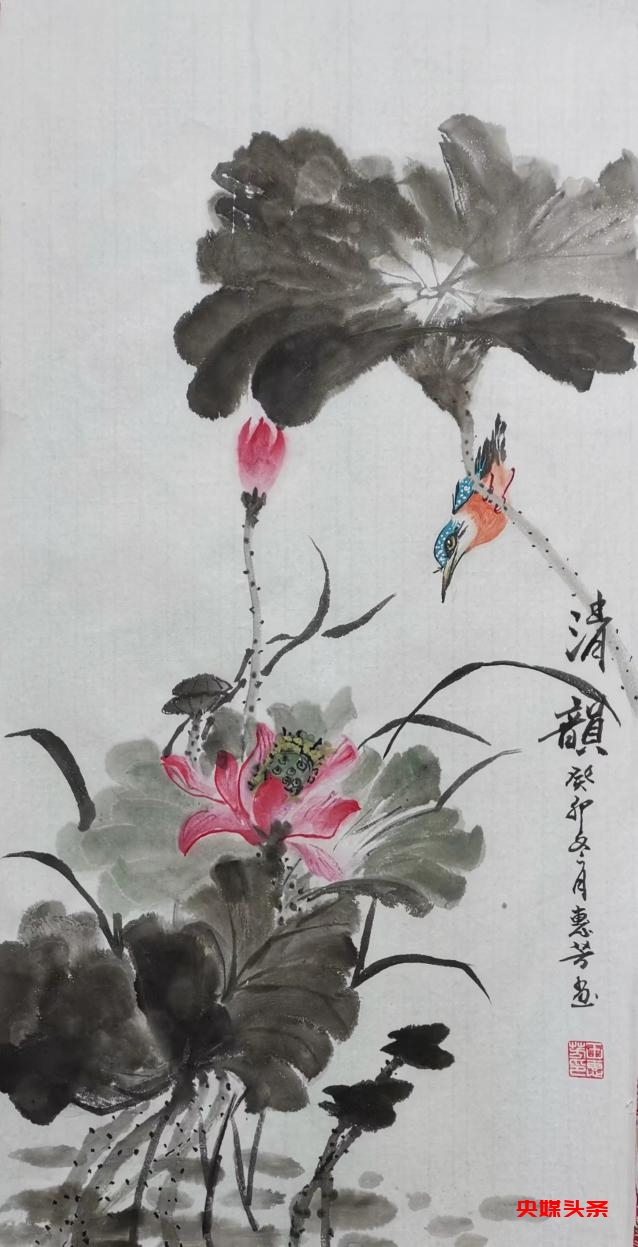 清韻
癸卯冬月惠芳画
央媒头条